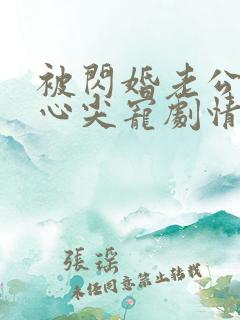 被閃婚老公
心尖寵劇情
張瑶
未经同意禁止转载